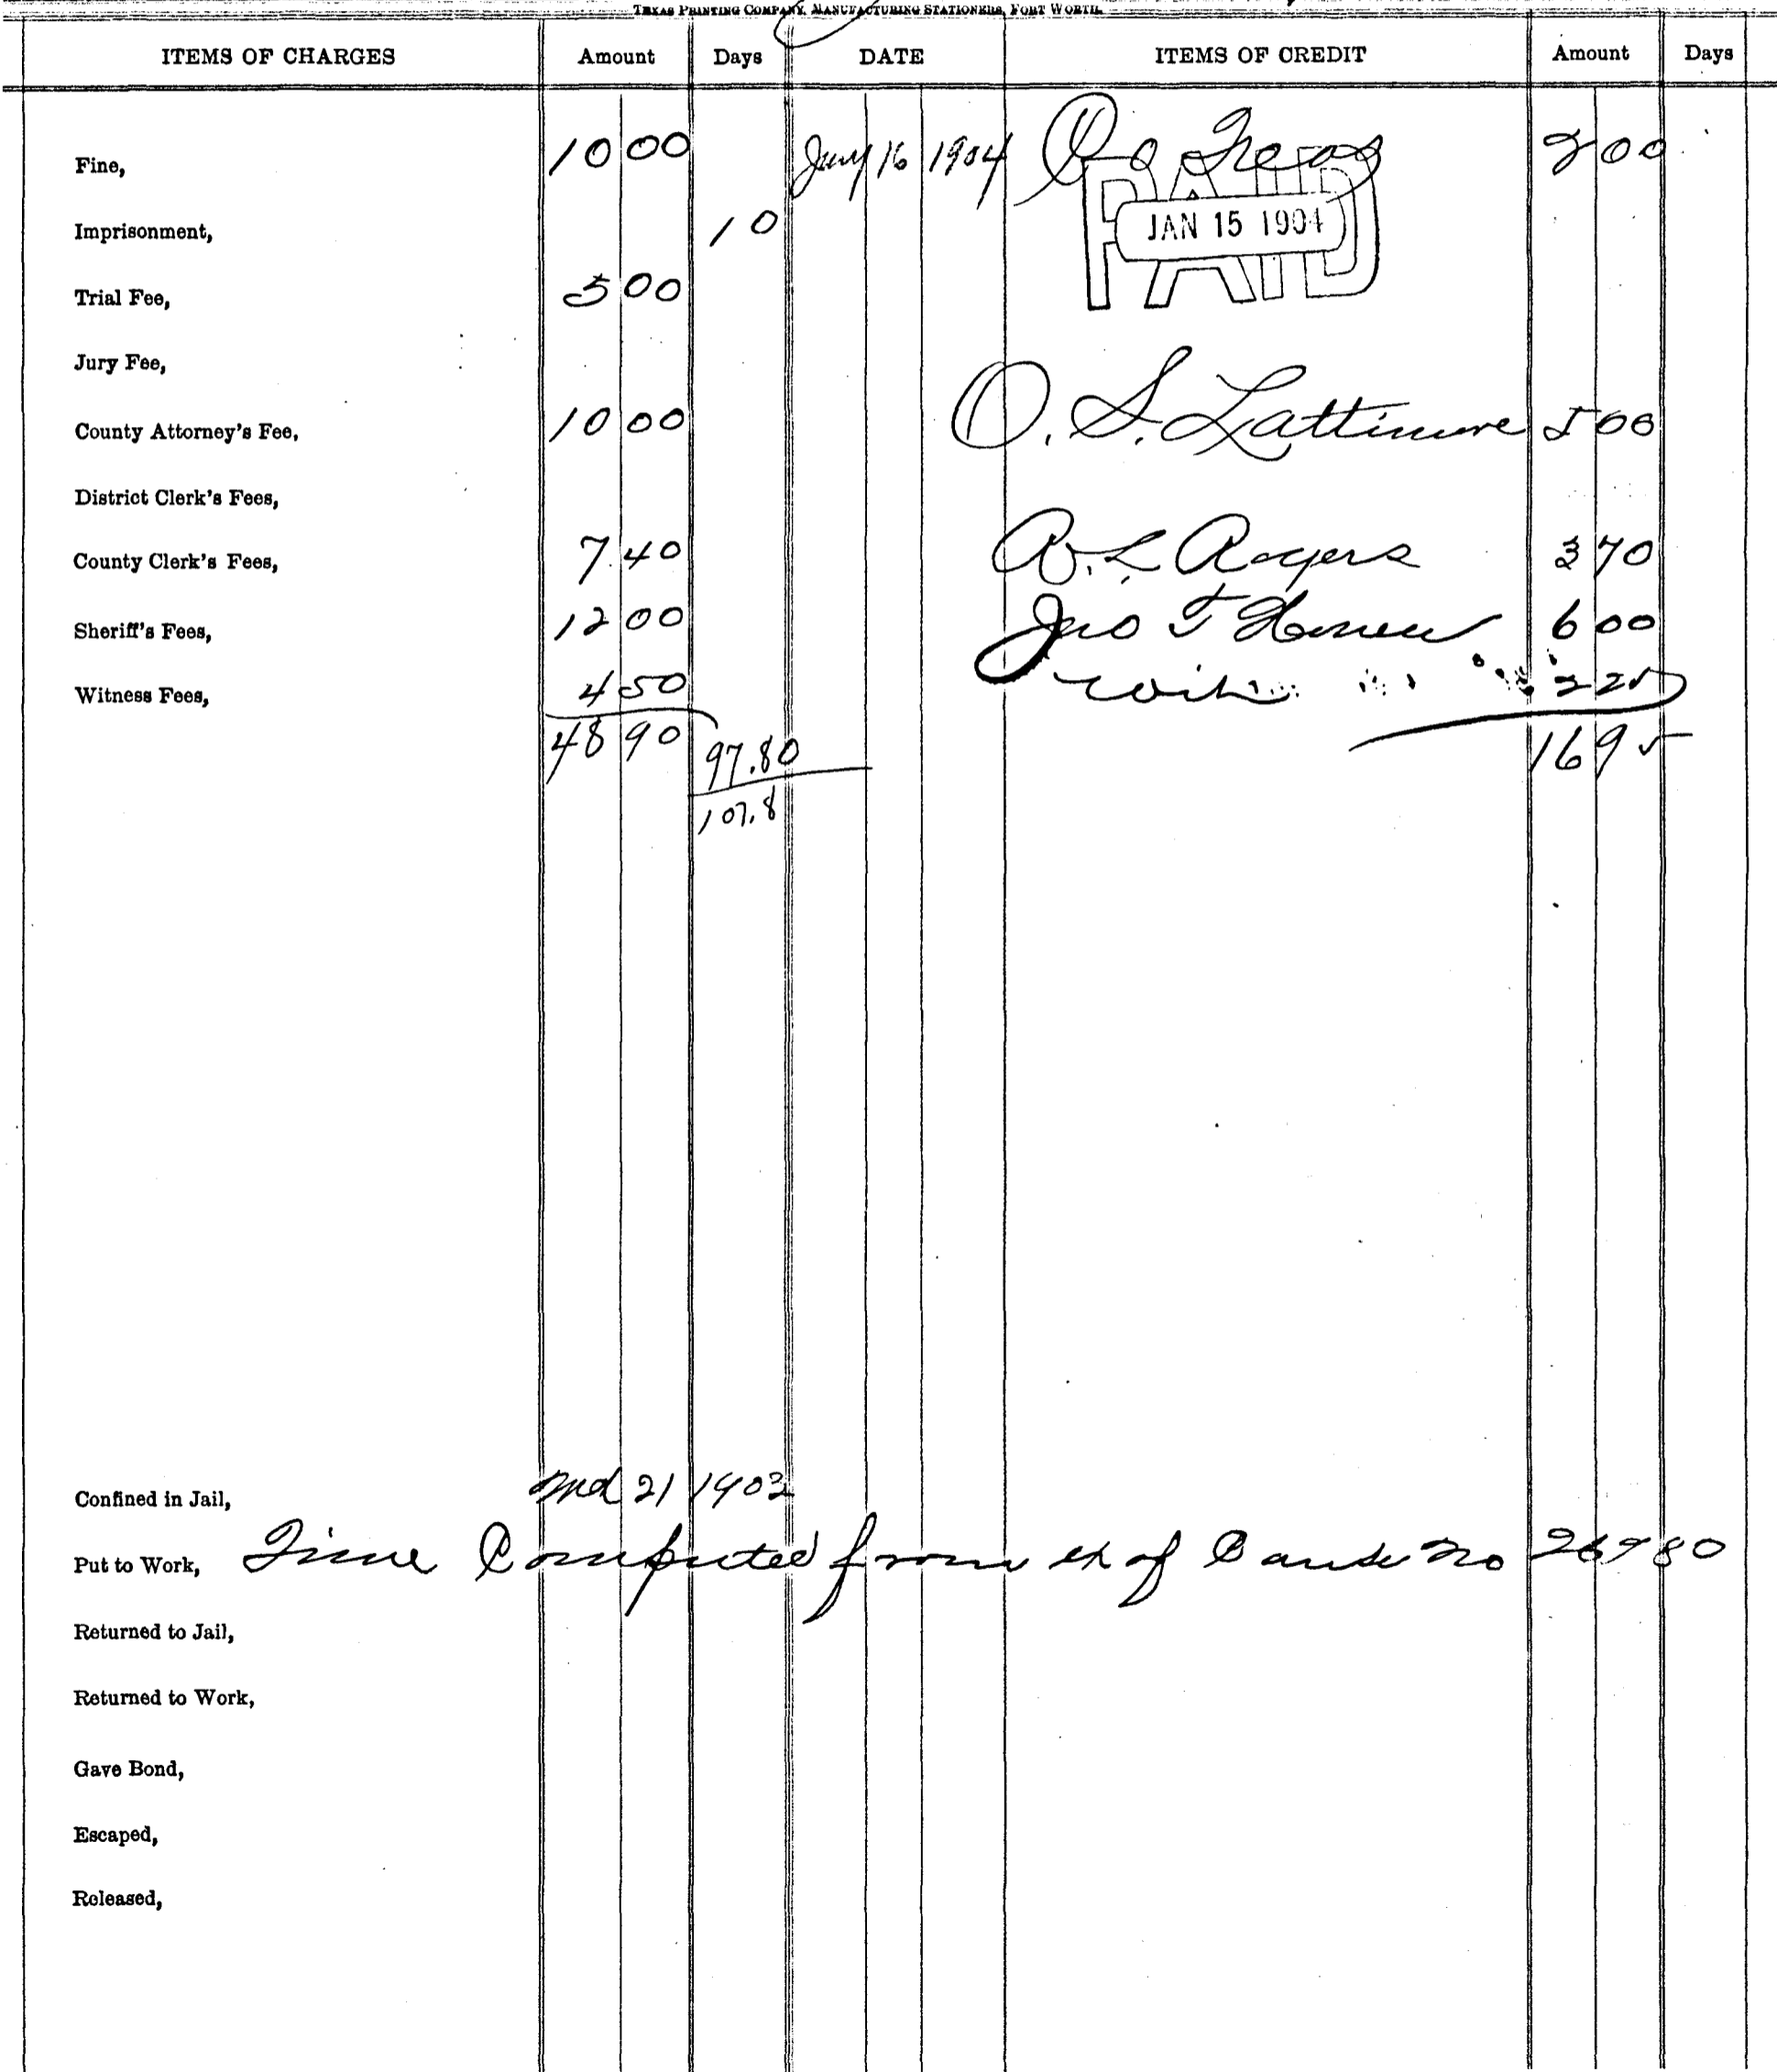 TEXAS PRINTING COMPANY, MANUFACTURING STATIONERS, FORT WORTH.
ITEMS OF CHARGES Amount Days DATE ITEMS OF CREDIT Amount Days
Fine, 10 00 Jany 16 1904 Co Treas 2 00
PAID
JAN 15 1904
Imprisonment, 10
Trial Fee, 5 00
Jury Fee,
County Attorney's Fee, 10 00 O. S. Lattimore 5 00
District Clerk's Fees,
County Clerk's Fees, 7.40 R. L Rogers 3 70
Sheriff's Fees, 12 00 Jno T Honea 6 00
Witness Fees, 4 50 wit 2 25
48 90 97.80 16 95
107.8
Confined in Jail, 21 1903
Put to Work, Time Computed from ex of Cause No 26980
Returned to Jail,
Returned to Work,
Gave Bond,
Escaped,
Released,